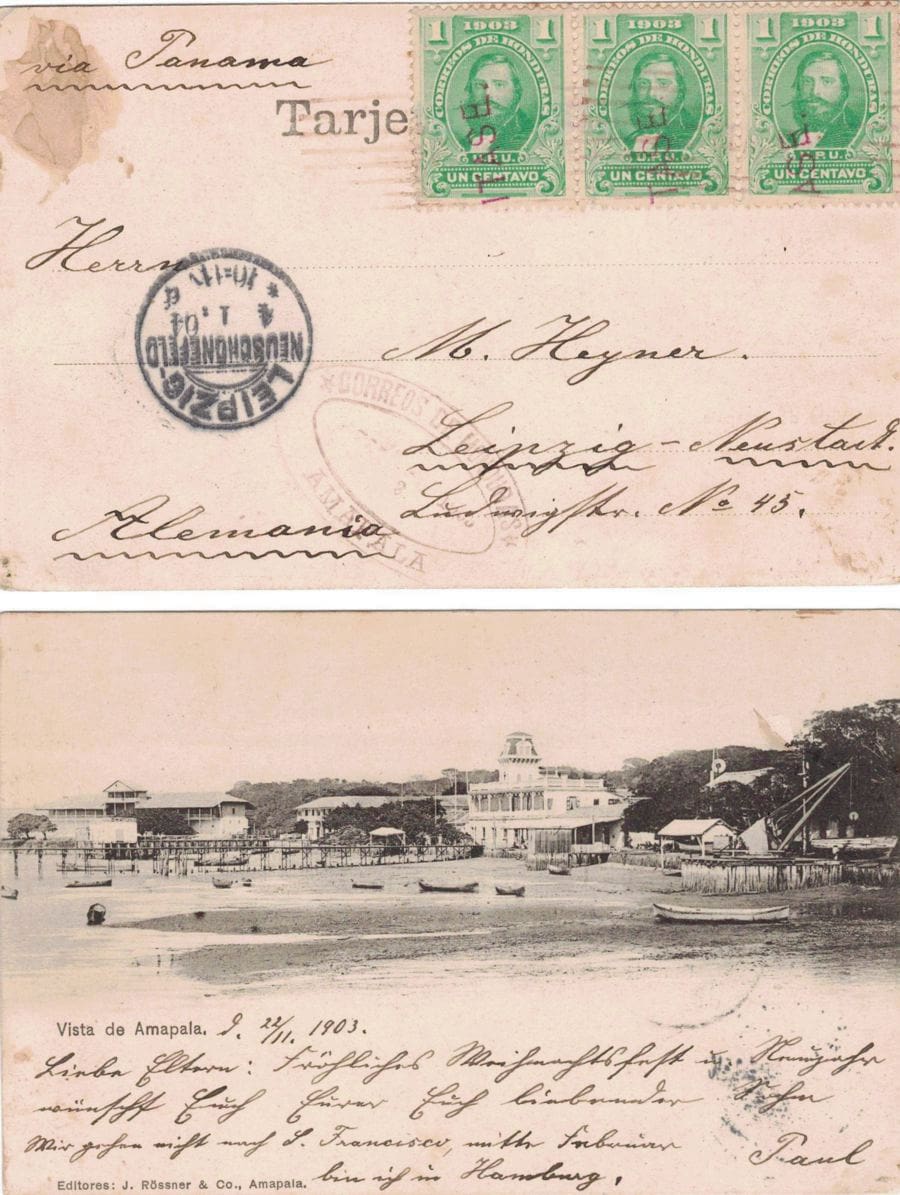 via Panama
Tarje
1903
1 1
CORREOS DE HONDURAS
U.P.U.
UN CENTAVO
1903
1 1
CORREOS DE HONDURAS
U.P.U.
UN CENTAVO
1903
1 1
CORREOS DE HONDURAS
U.P.U.
UN CENTAVO
Herrn
M. Heyner.
Leipzig-Neustadt.
Ludwigstr. No 45.
Alemania
LEIPZIG-
NEUSCHÖNEFELD
4 1. 04
* 10-11 V *
*CORREOS DE HONDURAS*
AMAPALA
Vista de Amapala. d. 22/11. 1903.
Liebe Eltern: Fröhliches Weihnachtsfest u. Neujahr
wünscht Euch Eurer Euch liebender Sohn
Wir gehen nicht nach S. Francisco, mitte Februar
Paul
bin ich in Hamburg.
Editores: J. Rössner & Co., Amapala.